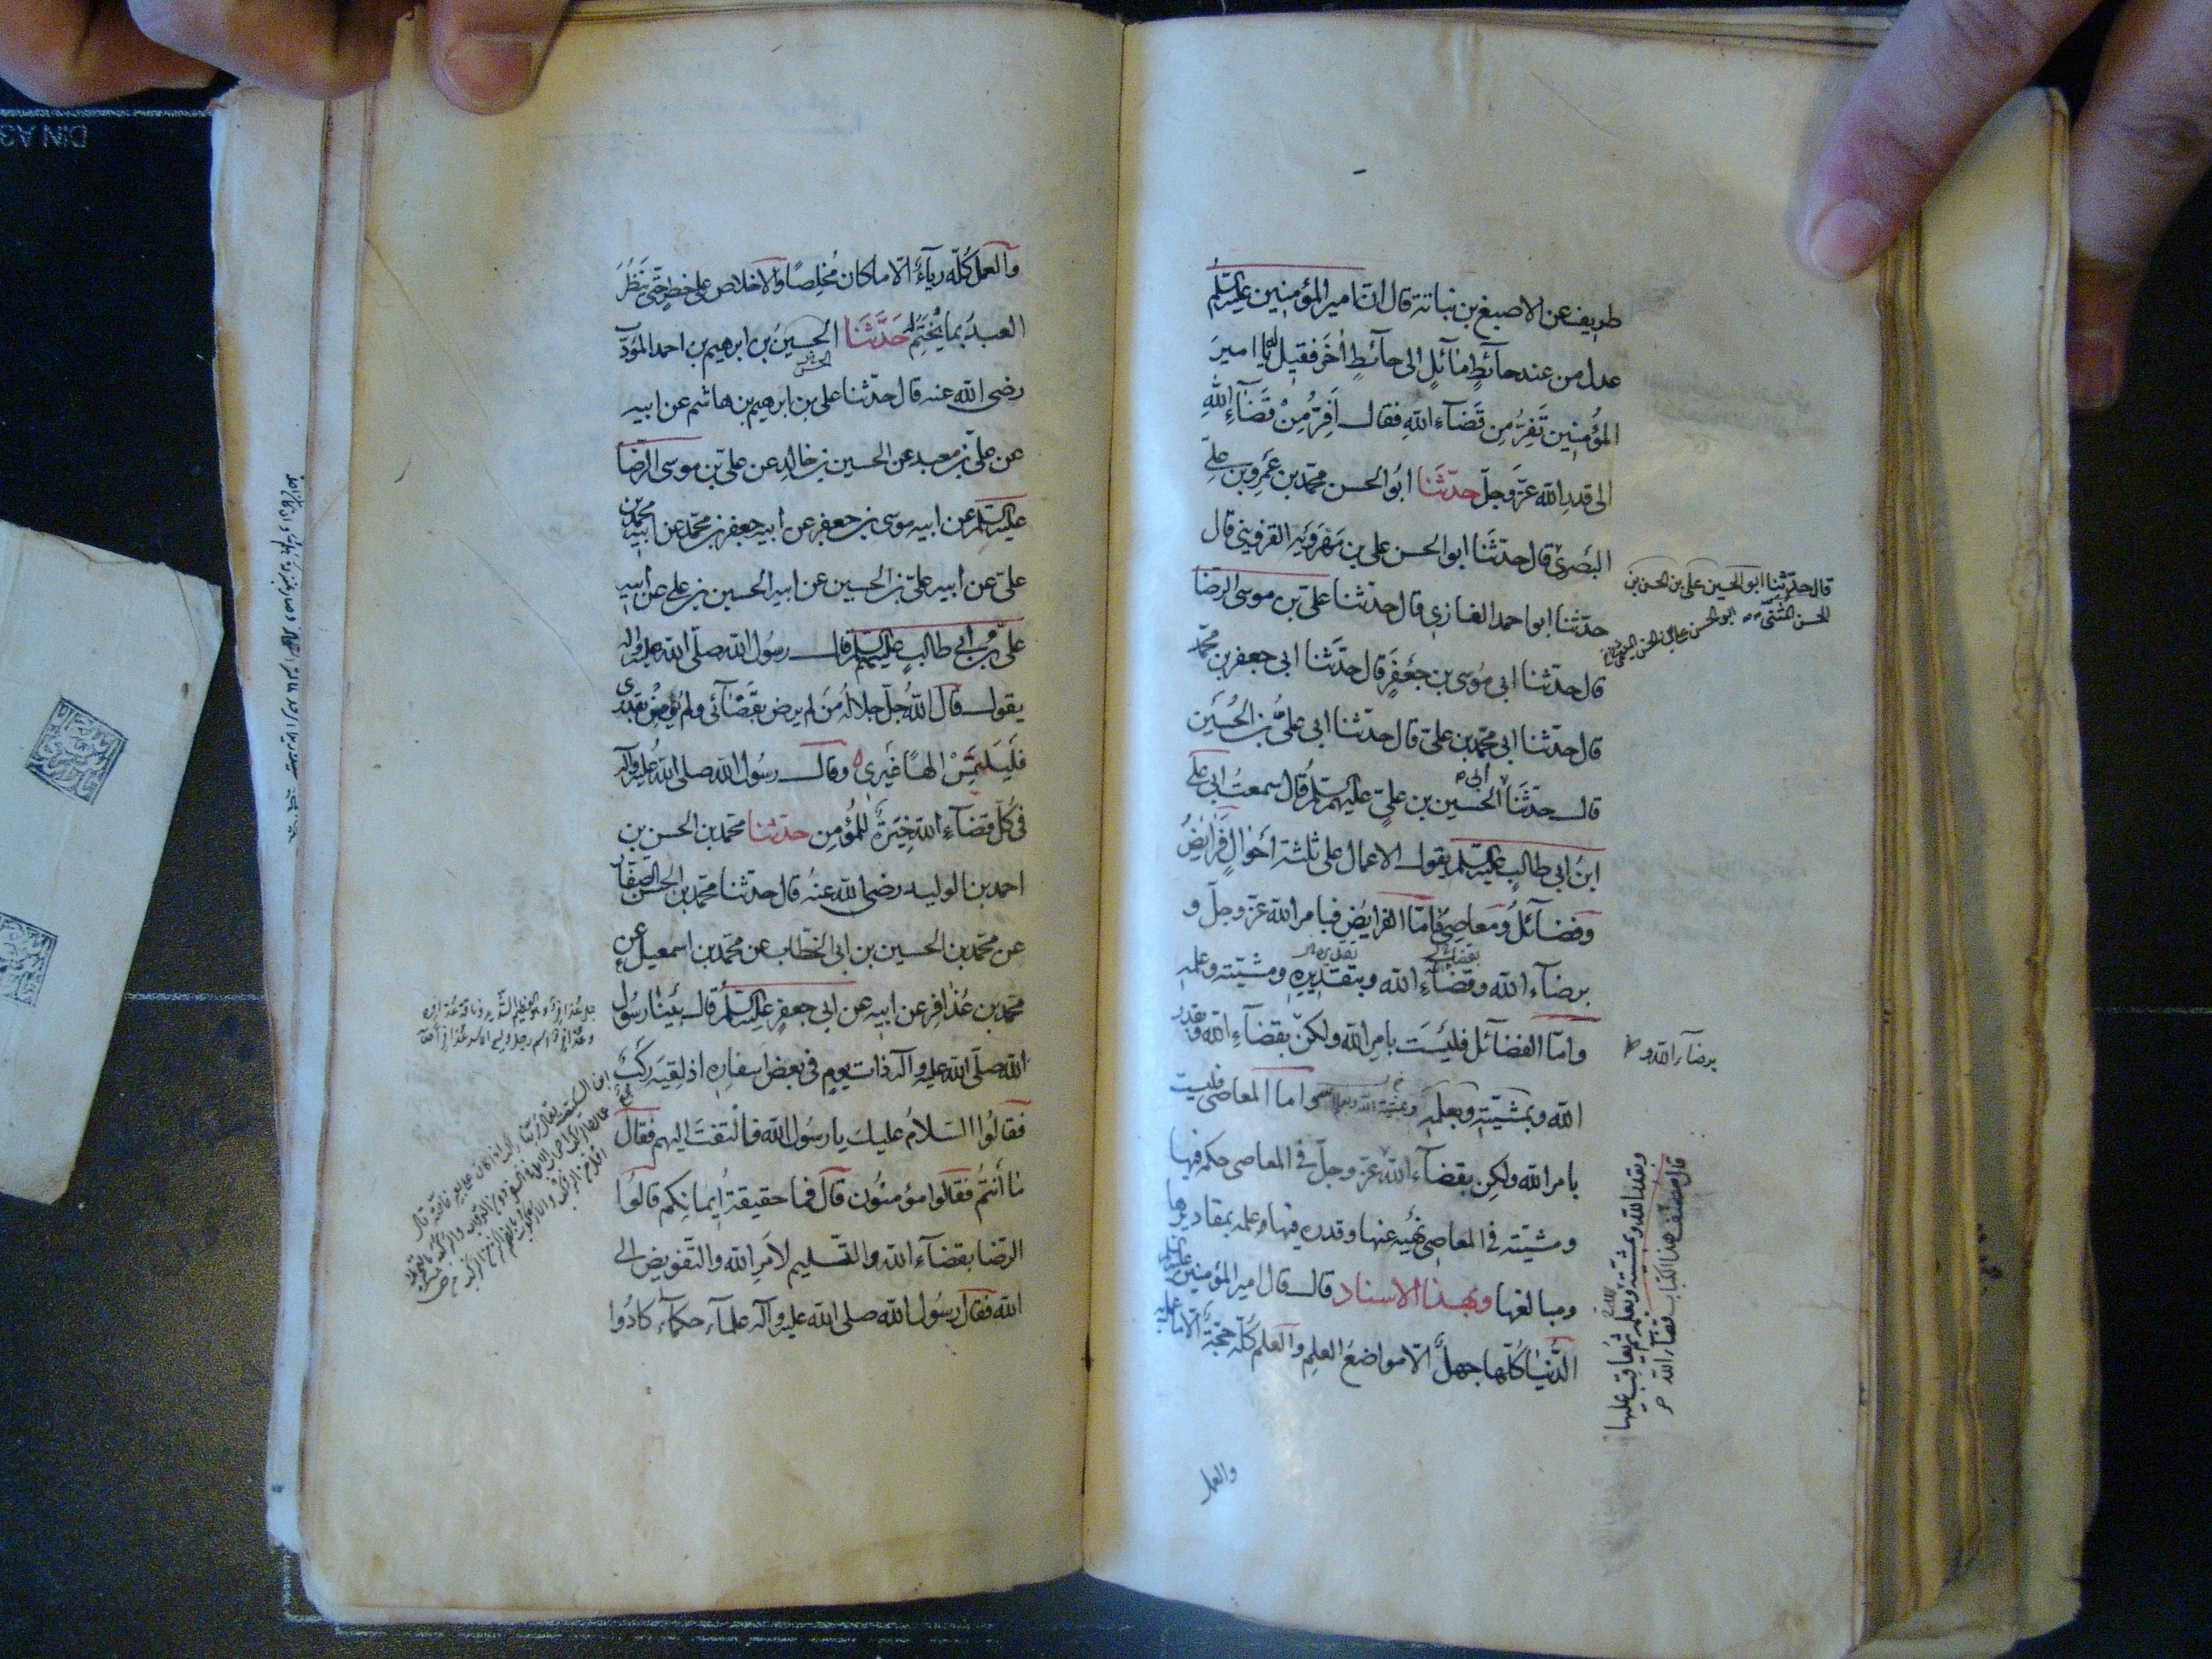 طريف عن الاصبغ بن نباتة قال ان امير المؤمنين عليه السلم
عدل من عند حآئطٍ مآئلٍ الى حآئطٍ اٰخَر فقيل له يا امير
المؤمنين تَفِرُّ مِن قَضَآء اللهِ فقال اَفِرُّ مِنْ قَضَآءِ اللهِ
الى قدر الله عزّوجلّ حدّثَنا ابُو الحسن محمّد بن عَمرو بن علي
البَصرى قال حدّثَنا ابو الحسن علي بن مَهرَوَيْهِ القزوينى قال
حدّثنا ابو احمد الغازي قال حدثنا علىّ بن موسى الرضا
قال حدثنا ابى مُوسى بن جَعفَرٍ قال حدَّثَنا ابى جعفر بن محمد
قال حدّثنا ابى محمّد بن علىّ قال حدّثنا ابى علىُّ بن الحُسَين
قال حدَّثَنا ابى الحسين بن علىٍ عليهم السلم قال سمعتُ ابى على
ابن ابى طالبٍ عليه السلم يقول الاعمال على ثلثة اَحْوالٍ فَرايضُ
وفضآئلُ ومَعاصِى فامّا الفرايض فبامر الله عزّوجلّ و
برضآء الله وقضآءِ الله وبتقديرِهِ ومشيّته وعلمه
وامّا الفضآئل فليسَت بامرِ الله ولكن بقضآءِ الله وبقدر
الله وبمشيّته وبعلمه واما المعاصى فليست
بامر الله ولكِن بقضآء الله عزّوجلّ فى المعاصى حكمه فيها
ومشيّته فى المعاصى نهيُه عنها وقدره فيها وعلمه بمقاديرها
ومبالغها وبهذا الاسناد قال قال امير المؤمنين عليه السلم
الدُّنيٰا كُلّها جهلٌ الّا مواضعُ العلمِ والعلم كُلّه حجّةٌ الّا ما عمل به
والعمل
قال حدّثنا ابو الحسين علىّ بن الحسن بن
الحسن المُثَنّى
برضآء الله و
قال مصنف هذا الكتاب قضآء الله
وبقدر الله وبمشيته وبعلمه ثم يُعاقب عليها
والعمل كُلّه رِيآءٌ الّا ما كان مُخلِصًا والاخلاص على خطرٍ حتّى يَنظُرَ
العبدُ بما يُختَمُ له حَدَّثَنا الحسينُ بن ابرهيم بن احمد المؤدّب
رضى الله عنه قال حدّثنا على بن ابرهيم بن هاشم عن ابيه
عن علىّ بن معبد عن الحسين بن خالدٍ عن على بن موسى الرّضا
عليه السلم عن ابيه موسى بن جعفر عن ابيه جعفر بن محمّد عن ابيه محمد بن
علىّ عن ابيه علىّ بن الحسين عن ابيه الحسين بن على عن ابيه
علىّ بن ابي طالب عليهم السلم قال رسُول الله صلّى الله عليه واله
يقول قال اللهُ جلّ جلاله مَن لم يرض بقَضٰآئى ولم يُؤمِنْ بقدرى
فَليَلتَمِسْ الهًا غَيرى وقال رسُول الله صلى الله عليه وآله
فى كُلّ قضآءِ الله خِيَرةٌ للمُؤمِنِ حدّثنا محمّد بن الحسن بن
احمد بن الوليد رضى الله عنهُ قال حدّثنا محمّد بن الحسن الصّفّار
عن محمّد بن الحسين بن ابى الخطّاب عن محمّد بن اسمعيل عن
محمّد بن عُذافِرٍ عن ابيه عن ابي جعفرٍ عليه السّلم قال بينٰا رسُول
الله صلّى الله عليه وآله ذات يومٍ فى بعض اسفارِهِ اذ لقِيَه رَكبٌ
فقالُوا السّلامُ عليكَ يا رسُول الله فالتفتَ اليهم فقال
مٰا أنتُم فقالوا مؤمنُون قال فما حقيقةُ اِيمانِكم قالوُا
الرّضا بقضآء الله والتّسليم لاَمرِ الله والتّفويض الى
الله فقال رسُول الله صلى الله عليه وآله علمآء حكمآء كادُوا